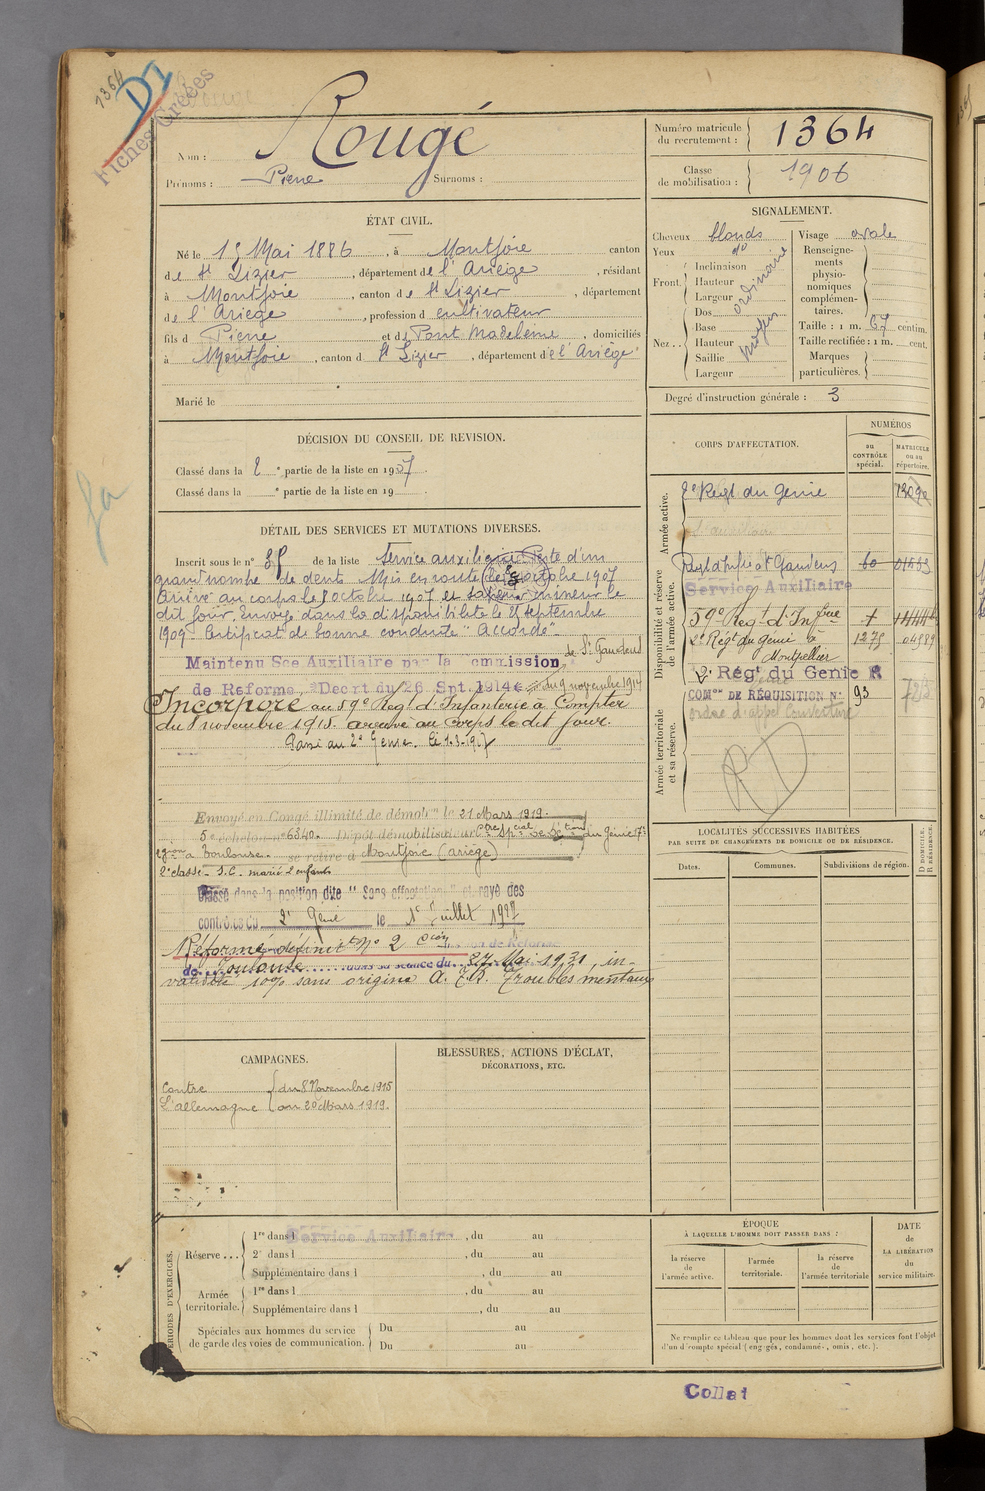 1364
DI
Fiches Créées
Nom : Rougé
Prénoms : Pierre Surnoms :
Numéro matricule du recrutement : 1364
Classe de mobilisation : 1906
ÉTAT CIVIL.
Né le 15 Mai 1886, à Montjoie canton
de St Lizier, département de l'Ariège, résidant
à Montjoie, canton de St Lizier, département
de l'Ariège, profession d cultivateur
fils d Pierre et d Pont Madeleine, domiciliés
à Montjoie, canton d St Lizier, département de l'Ariège
Marié le
SIGNALEMENT.
Cheveux blonds
Yeux do
Front. Inclinaison
Hauteur
Largeur
ordinaire
Nez .. Dos
Base
Hauteur
Saillie
Largeur
moyen
Visage ovale
Renseignements physionomiques complémentaires.
Taille : 1 m. 67 centim.
Taille rectifiée : 1 m. cent.
Marques particulières.
Degré d'instruction générale : 3
DÉCISION DU CONSEIL DE REVISION.
Classé dans la 2 e partie de la liste en 1907.
Classé dans la e partie de la liste en 19 .
DÉTAIL DES SERVICES ET MUTATIONS DIVERSES.
Inscrit sous le n° de la liste Service auxiliaire Perte d'un
grand nombre de dents Mis en route le octobre 1907
Arrivé au corps le 8 octobre 1907 et sapeur mineur le
dit jour. Envoyé dans la disponibilité le 25 septembre
1909. Certificat de bonne conduite "Accordé"
Maintenu Sce Auxiliaire par la Commission de St Gaudens
de Reforme, Decrt du 26 Spt. 1914 du 9 novembre 1914
Incorporé au 59e Regt d'Infanterie à Compter
du 8 novembre 1915. arrivé au Corps le dit jour.
Passé au 2e Genie. Le 1.3.1917
Envoyé en Congé illimité de démobon le 21 Mars 1919.
5e échelon n° 6340. Dépôt démobilisateur du Génie 17e
région à Toulouse. se retire à Montjoie (ariège)
2e classe - S.C. marié 2 enfants
Classé dans la position dite "Sans affectation" et rayé des
contrôles du 2e Génie le 1er Juillet 1927
Réformé définitt N° 2 Con de Réforme
de Toulouse dans sa séance du 27 Mai 1931 in-
validité 10% sans origine A. Troubles mentaux
CORPS D'AFFECTATION.
NUMÉROS
au CONTRÔLE spécial.
MATRICULE ou au répertoire.
Armée active.
2e Regt du Génie
Disponibilité et réserve de l'armée active.
Regt d'Infie St Gaudens 60 01553
Service Auxiliaire
59e Regt d'Infbie
2e Régt du génie à Montpellier 1275 04589
2e Régt du Genie R
Armée territoriale et sa réserve.
COMon DE RÉQUISITION N° 93
ordre d'appel Couverture
RD
LOCALITÉS SUCCESSIVES HABITÉES
PAR SUITE DE CHANGEMENTS DE DOMICILE OU DE RÉSIDENCE.
Dates.
Communes.
Subdivisions de région.
D DOMICILE. R RÉSIDENCE.
CAMPAGNES.
Contre L'allemagne { du 8 Novembre 1915
au 20 Mars 1919.
BLESSURES, ACTIONS D'ÉCLAT,
DÉCORATIONS, ETC.
PÉRIODES D'EXERCICES.
Réserve ... 1re dans l Service Auxiliaire, du au
2e dans l , du au
Supplémentaire dans l , du au
Armée territoriale. 1re dans l , du au
Supplémentaire dans l , du au
Spéciales aux hommes du service de garde des voies de communication. Du au
Du au
ÉPOQUE
À LAQUELLE L'HOMME DOIT PASSER DANS :
la réserve de l'armée active.
l'armée territoriale.
la réserve de l'armée territoriale
DATE de LA LIBÉRATION du service militaire.
Ne remplir ce tableau que pour les hommes dont les services font l'objet
d'un décompte spécial (engagés, condamnés, omis, etc.).
Collat